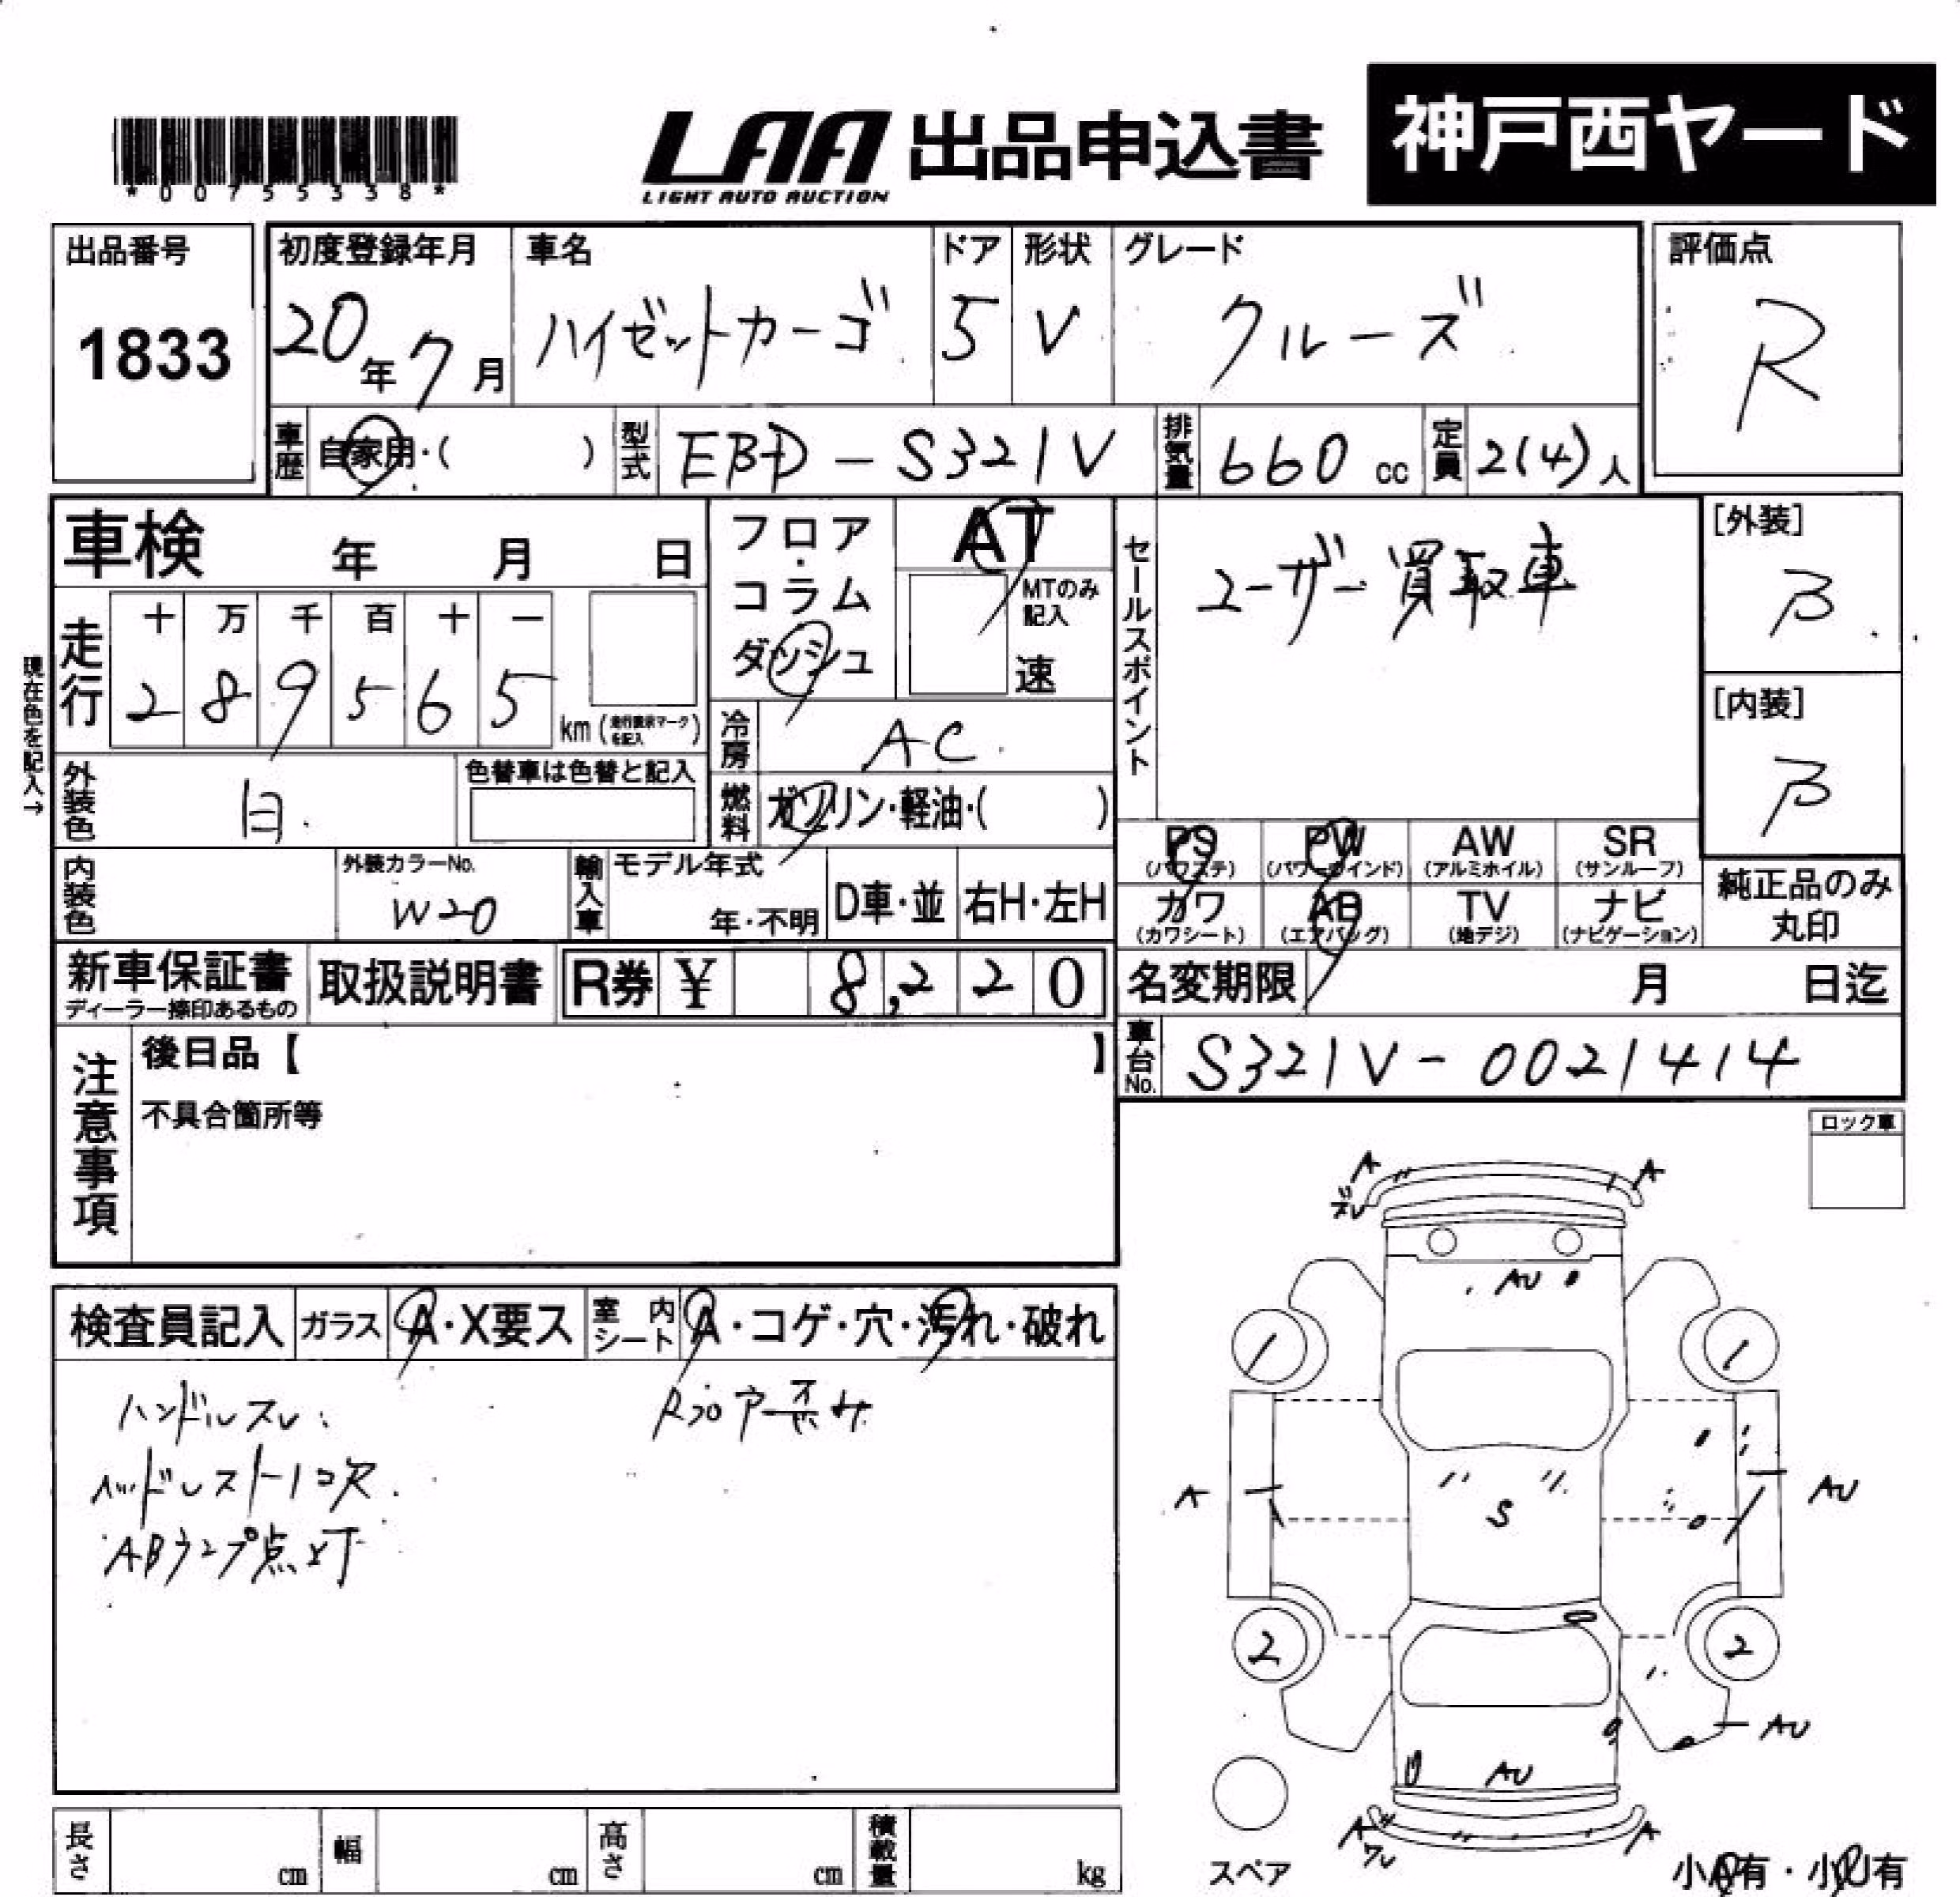 LAA 出品申込書 神戸西ヤード
LIGHT AUTO AUCTION
*00755338*
出品番号 初度登録年月 車名 ドア 形状 グレード 評価点
1833 20年7月 ハイゼットカーゴ 5 V クルーズ R
車歴 自家用・( ) 型式 EBD-S321V 排気量 660 cc 定員 2(4)人
車検 年 月 日
フロア・コラム
ダッシュ
AT
MTのみ
記入
速
セールスポイント
ユーザー買取車
[外装]
B
[内装]
B
現在色を記入→
走行 十 万 千 百 十 一
2 8 9 5 6 5 km(走行表示マークを記入)
冷房 AC
外装色 白 色替車は色替と記入
燃料 ガソリン・軽油・( )
内装色 外装カラーNo. W20
輸入車 モデル年式 年・不明 D車・並 右H・左H
PS PW AW SR
(パワステ) (パワーウインド) (アルミホイル) (サンルーフ)
カワ AB TV ナビ
(カワシート) (エアバッグ) (地デジ) (ナビゲーション)
純正品のみ
丸印
新車保証書 取扱説明書 R券 ¥ 8,220
ディーラー捺印あるもの
名変期限 月 日迄
車台No. S321V-0021414
注意事項
後日品【 】
不具合箇所等
ロック車
検査員記入 ガラス A・X要ス 室内シート A・コゲ・穴・汚れ・破れ
ハンドルスレ Rフロアー歪サ
ヘッドレスト1コ欠
ABランプ点灯
A A
ズレ
AU
1 1
A S AU
2 2
AU
AU
A A
ワレ
スペア
小A有・小U有
長さ cm 幅 cm 高さ cm 積載量 kg